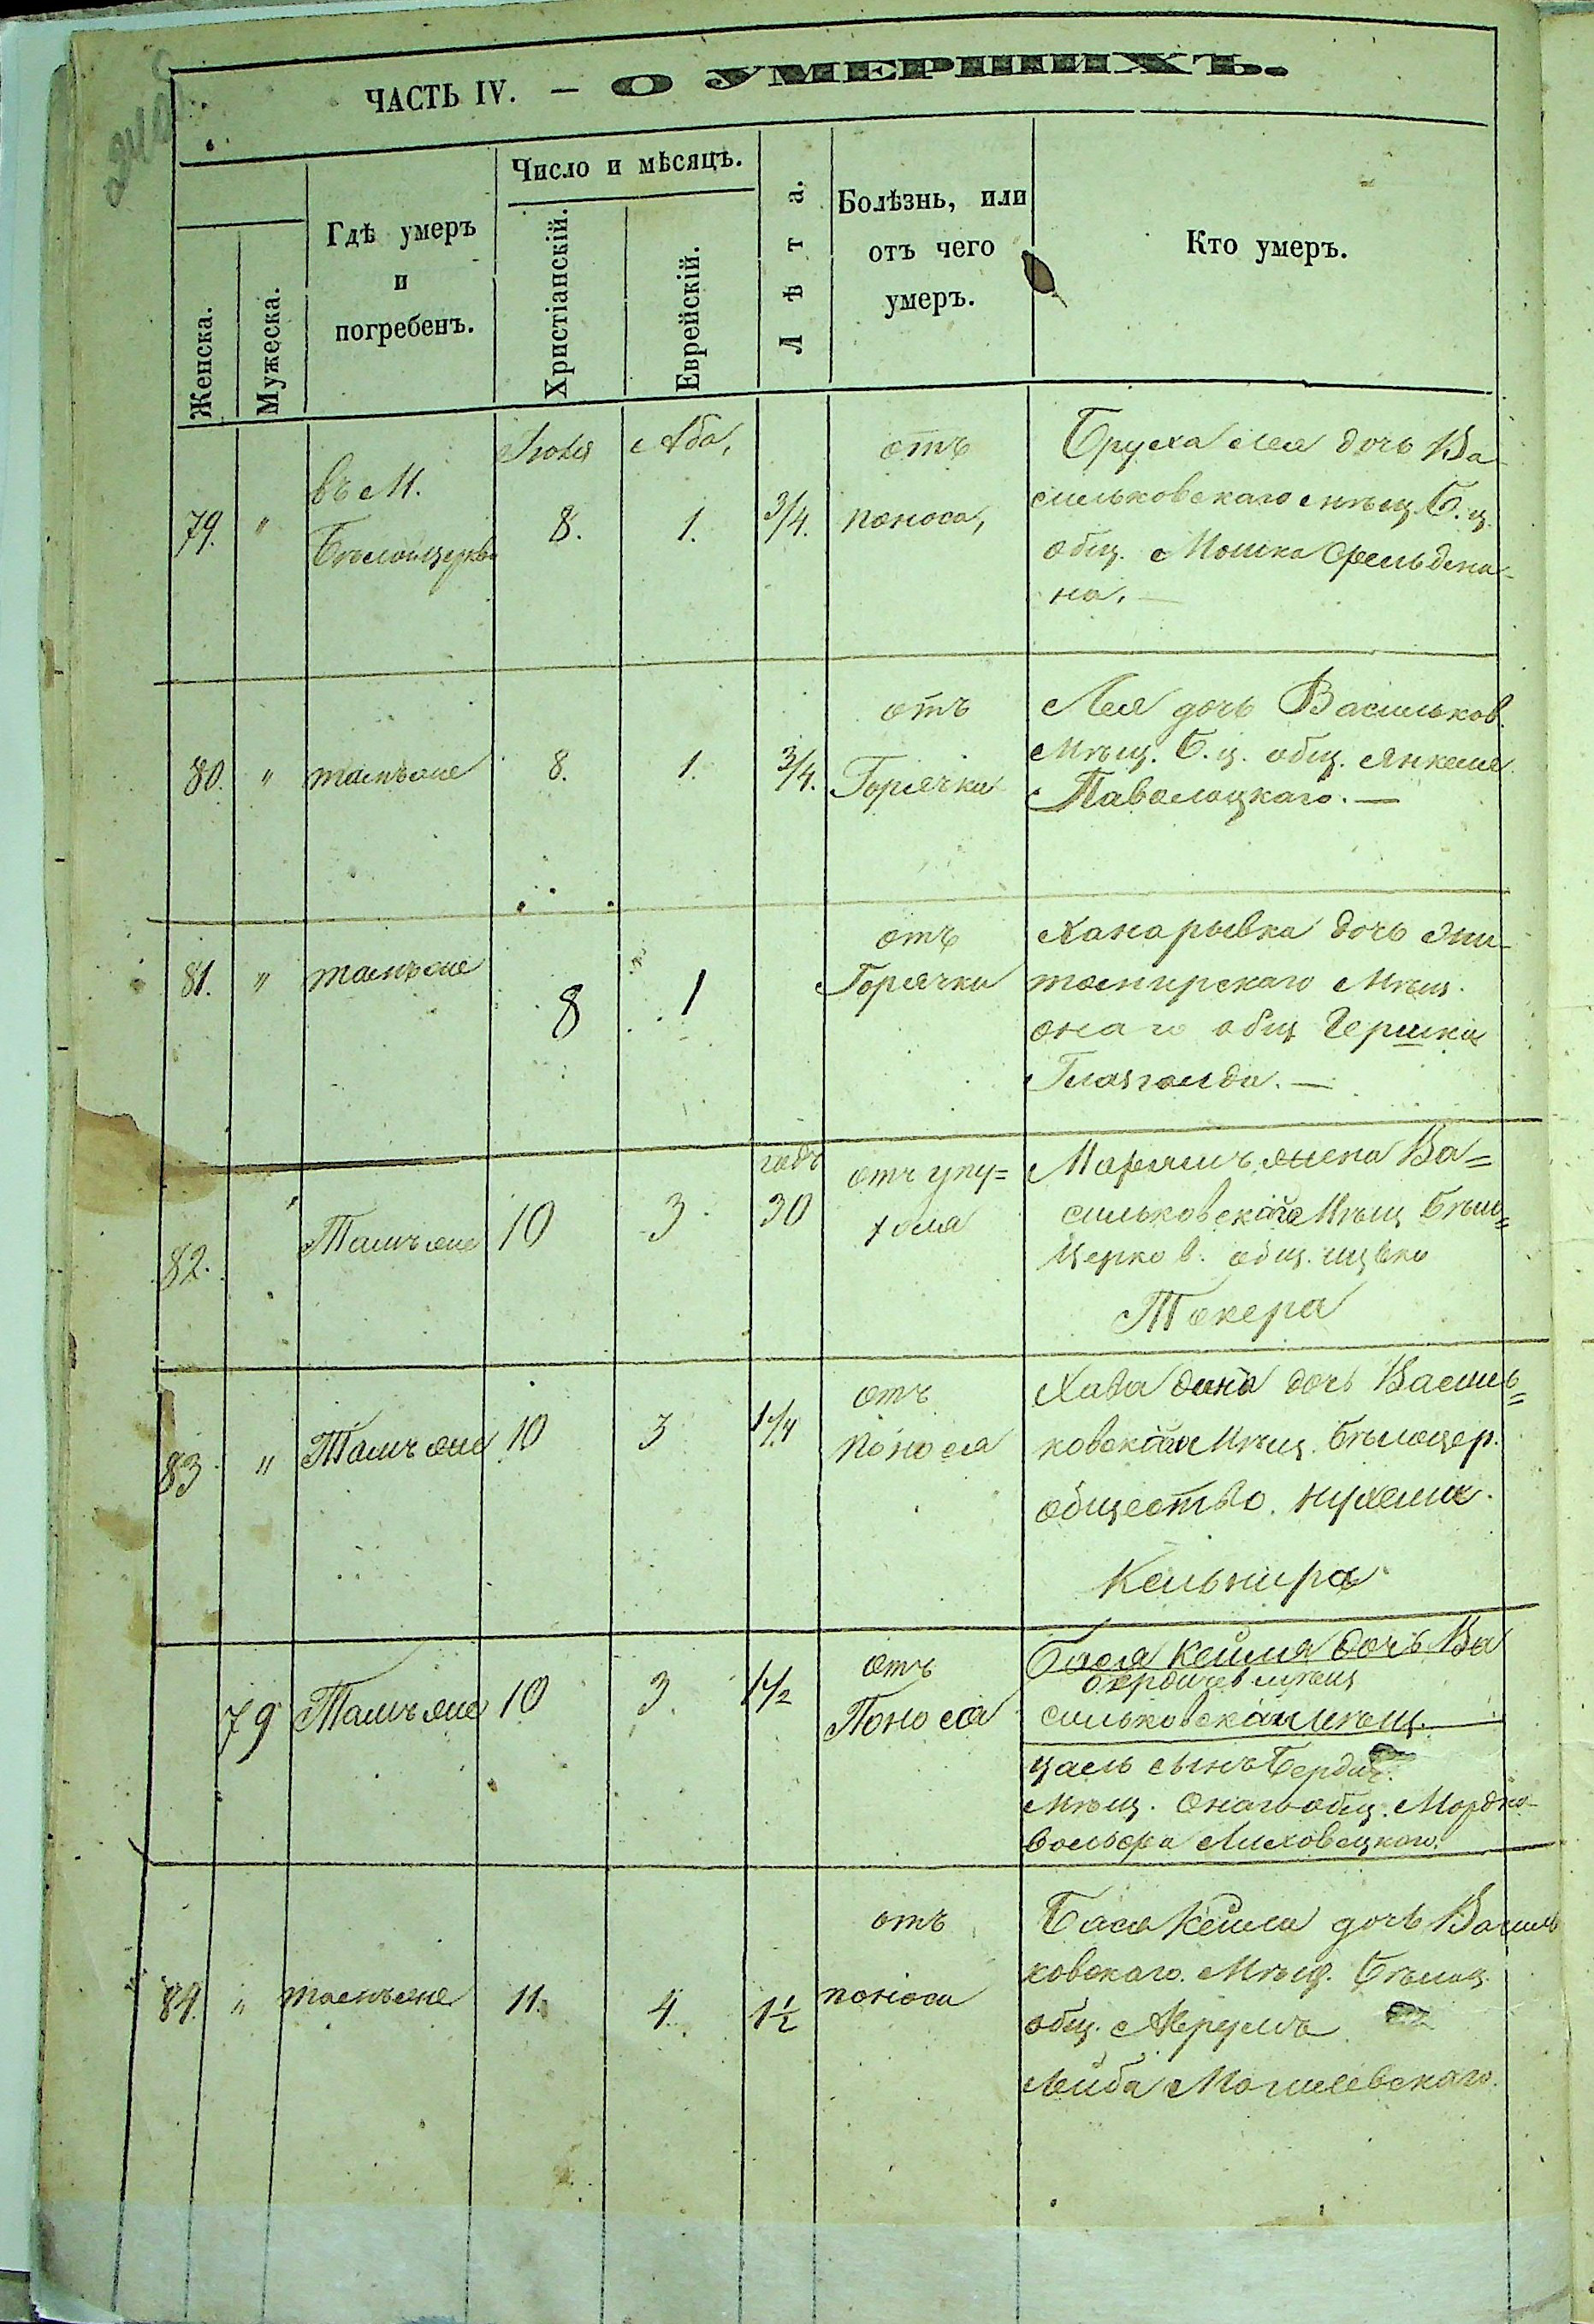 ЧАСТЬ IV. — О УМЕРШИХЪ.
Женска.
Мужеска.
Гдѣ умеръ
и
погребенъ.
Число и мѣсяцъ.
Христіанскій.
Еврейскій.
Лѣта.
Болѣзнь, или
отъ чего
умеръ.
Кто умеръ.
79. " въ М. Іюля 8. Аба, 1. 3/4. отъ
Бѣлойцеркви поноса,
Бруха Лея дочь Ва-
сильковскаго мѣщ. Б. ц.
общ. Мошка Фельдма-
на. —
80. " тамъже 8. 1. 3/4. отъ
Горячки
Лея дочь Васильков.
Мѣщ. Б. ц. общ. Янкеля
Паволоцкаго. —
81. " тамъже 8 1 отъ
Горячки
Ханарывка дочь Жи-
томирскаго Мѣщ.
онаго общ Гершка
82. Тамъже 10 3 годъ
30 отъ
Марьямъ жена Ва=
сильковскаго Мѣщ Бѣло=
Церков. общ. ицько
Токера
83 " Тамъже 10 3 1 1/4 отъ
поноса
Хава дина дочь Василь=
ковскаго Мѣщ. Бѣлоцер.
общество. нухима.
Кельнира
79 Тамъже 10 3 1 1/2 отъ
Поноса
Бася Кейля дочь Ва
бердичев мѣщ
сильковскаго мѣщ.
сынъ Бердич.
Мѣщ. Онаго общ. Мордко-
вольфа Ляховецкаго.
84. " тамъже 11. 4. 1 1/2 отъ
поноса
Бася Кейля дочь Василь
ковскаго. Мѣщ. Бѣлоц.
общ. Аврумъ
Лейба Могилевскаго.